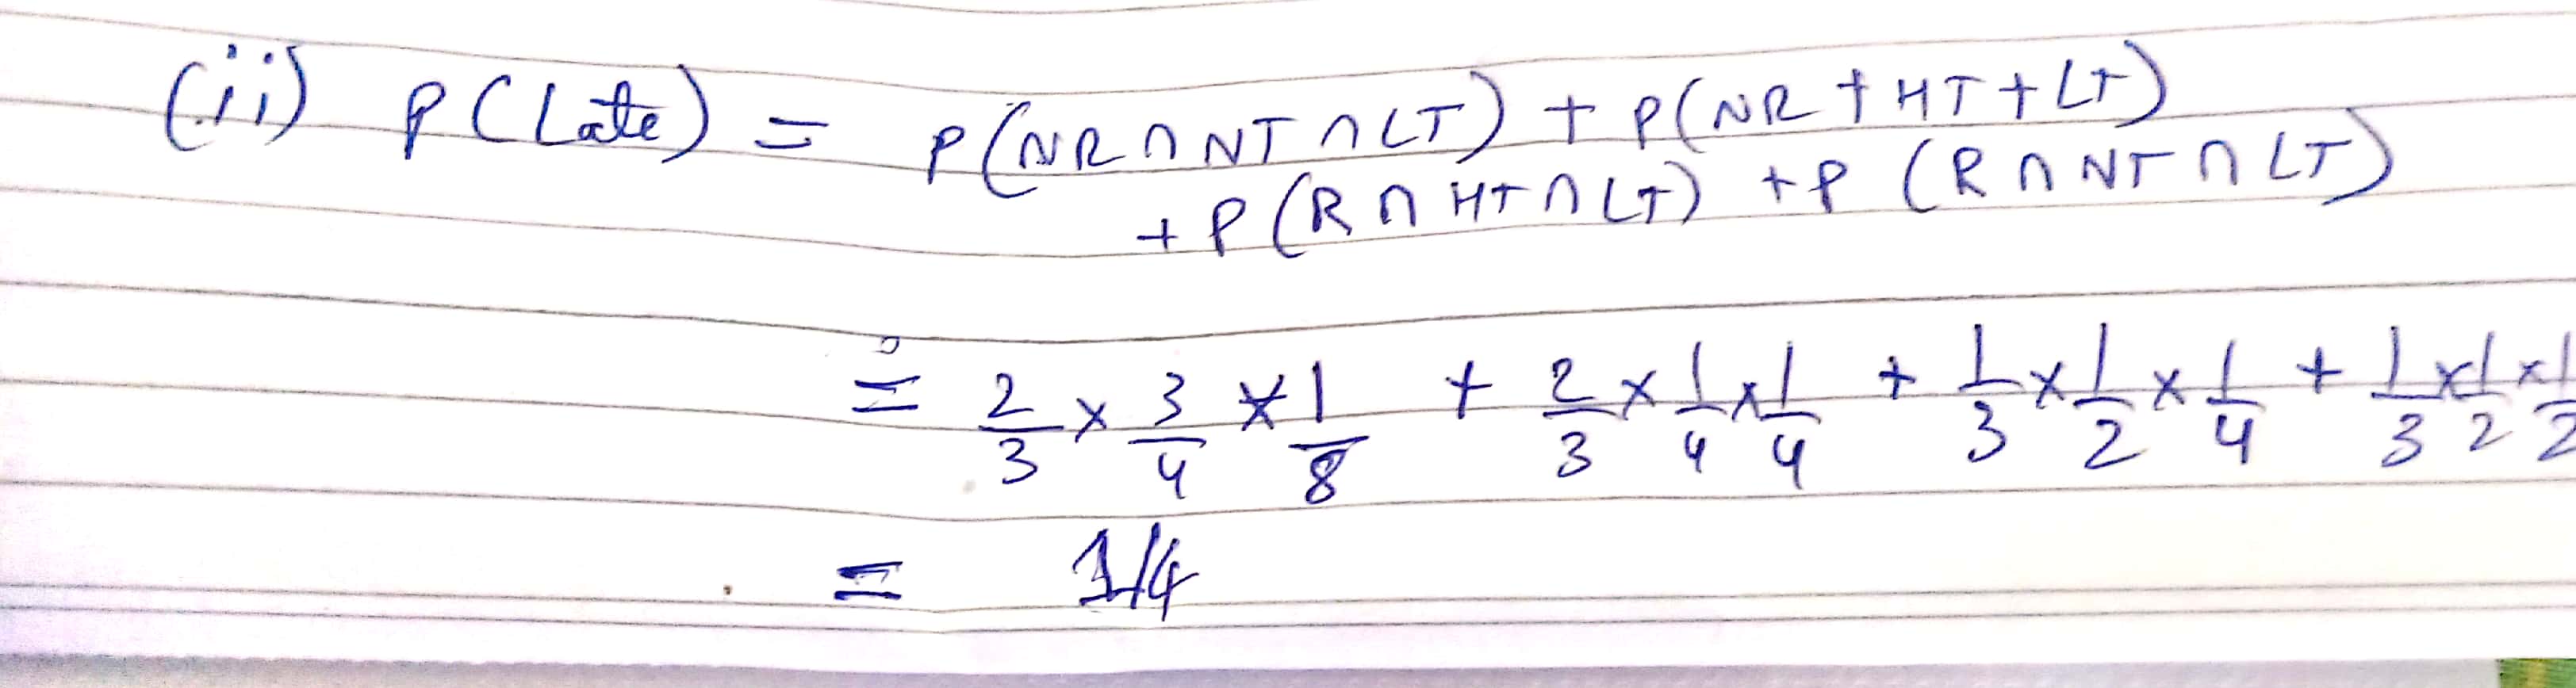 (ii) P(Late) = P(NR ∩ NT ∩ LT) + P(NR + HT + LT)
+ P(R ∩ HT ∩ LT) + P (R ∩ NT ∩ LT)
= 2/3 × 3/4 × 1/8 + 2/3 × 1/4 × 1/4 + 1/3 × 1/2 × 1/4 + 1/3 × 1/2 × 1/2
= 1/4